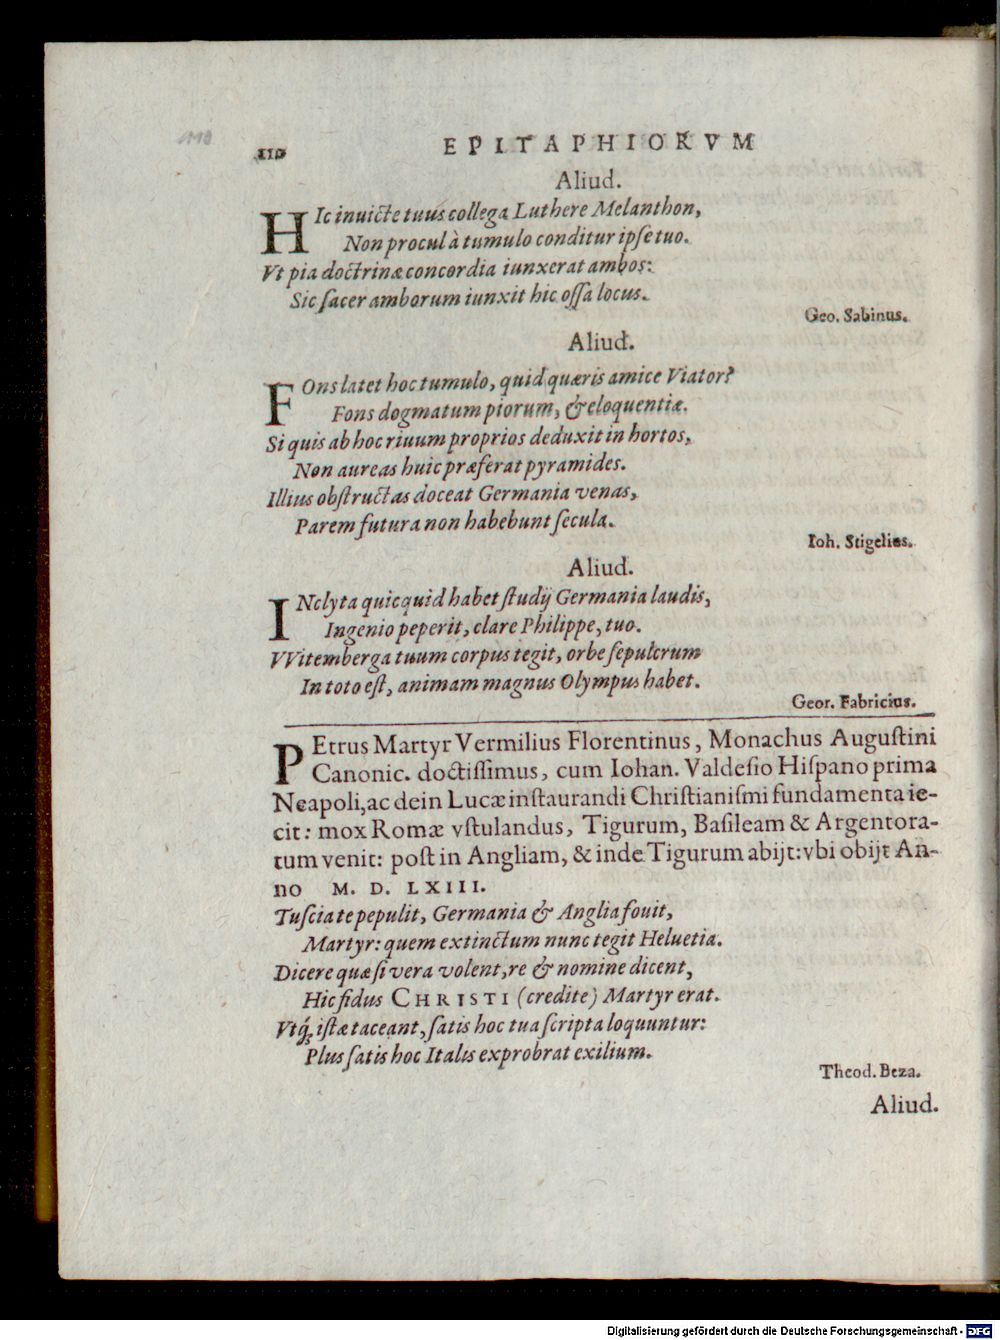 119
110 EPITAPHIORVM
Aliud.
HIc inuicte tuus collega Luthere Melanthon,
Non procul à tumulo conditur ipse tuo.
Vt pia doctrinæ concordia iunxerat ambos:
Sic sacer amborum iunxit hic ossa locus.
Geo. Sabinus.
Aliud.
FOns latet hoc tumulo, quid quæris amice Viator?
Fons dogmatum piorum, & eloquentiæ.
Si quis ab hoc riuum proprios deduxit in hortos,
Non aureas huic præferat pyramides.
Illius obstructas doceat Germania venas,
Parem futura non habebunt secula.
Ioh. Stigelius.
Aliud.
INclyta quicquid habet studij Germania laudis,
Ingenio peperit, clare Philippe, tuo.
VVitemberga tuum corpus tegit, orbe sepulcrum
In toto est, animam magnus Olympus habet.
Geor. Fabricius.
PEtrus Martyr Vermilius Florentinus, Monachus Augustini
Canonic. doctissimus, cum Iohan. Valdesio Hispano prima
Neapoli, ac dein Lucæ instaurandi Christianismi fundamenta ie-
cit: mox Romæ vstulandus, Tigurum, Basileam & Argentora-
tum venit: post in Angliam, & inde Tigurum abijt: vbi obijt An-
no M. D. LXIII.
Tuscia te pepulit, Germania & Anglia fouit,
Martyr: quem extinctum nunc tegit Heluetia.
Dicere quæ si vera volent, re & nomine dicent,
Hic fidus CHRISTI (credite) Martyr erat.
Vtq́; istæ taceant, satis hoc tua scripta loquuntur:
Plus satis hoc Italis exprobrat exilium.
Theod. Beza.
Aliud.
Digitalisierung gefördert durch die Deutsche Forschungsgemeinschaft - DFG